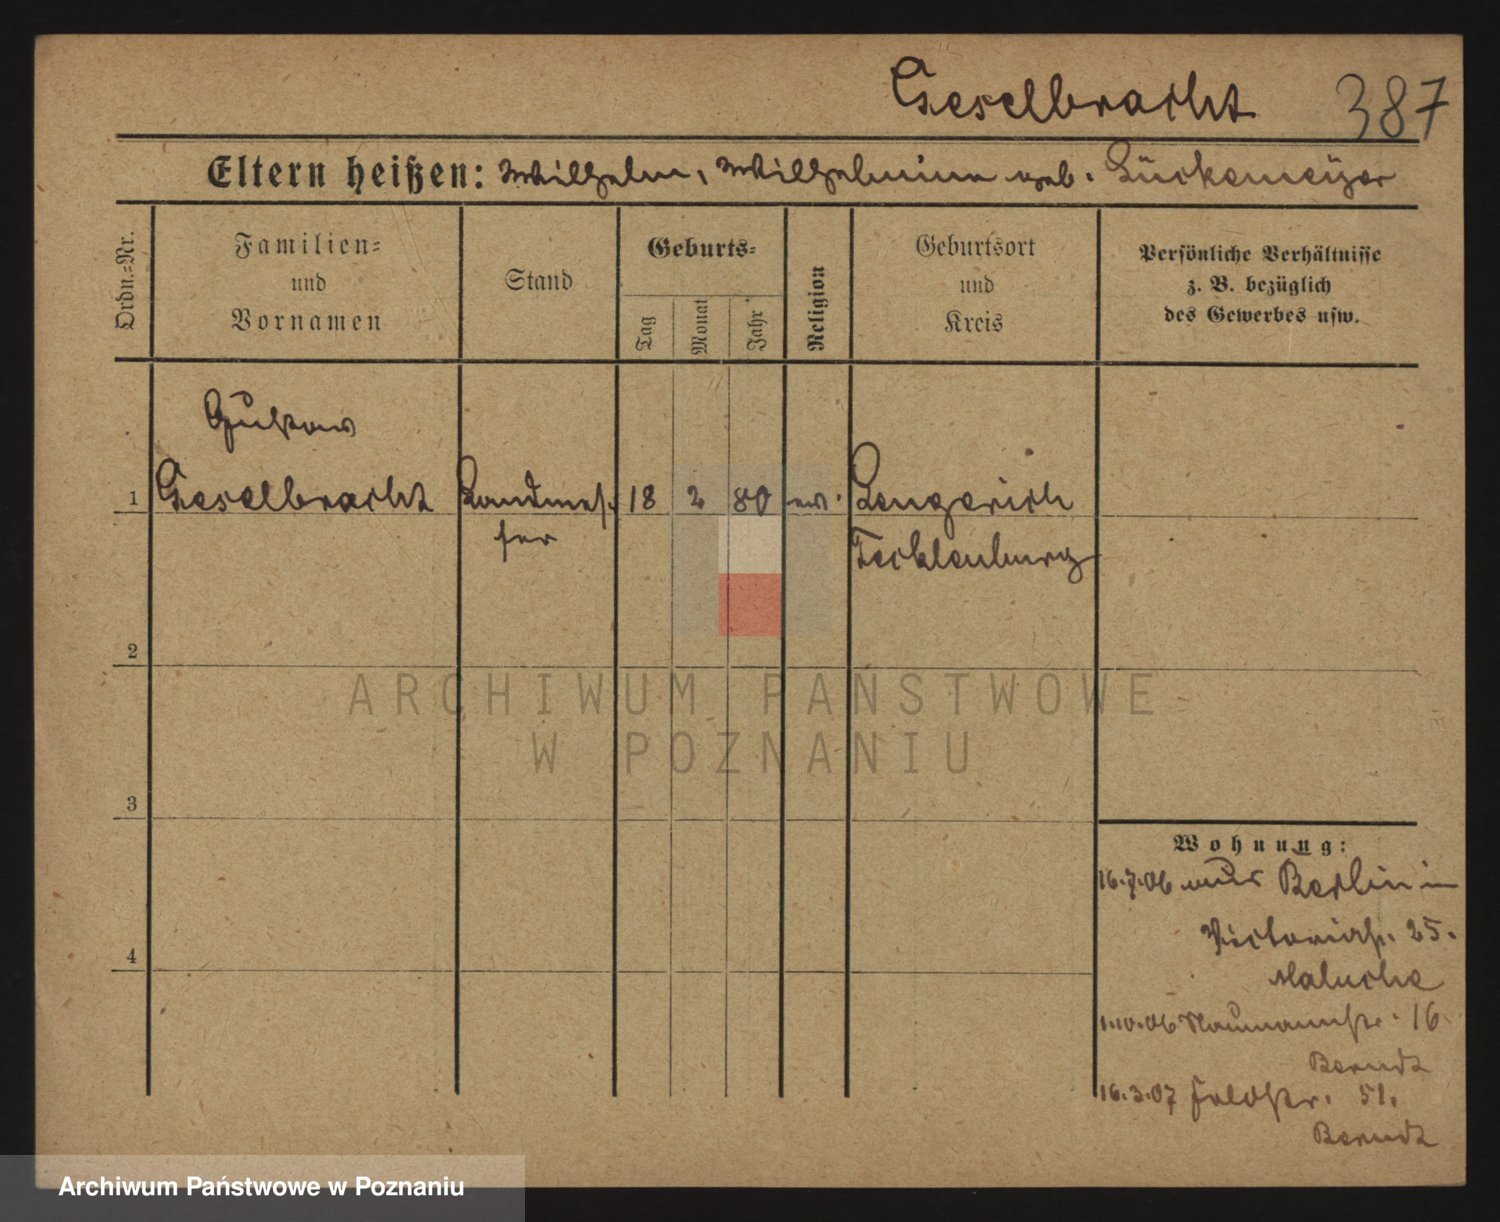 Geselbracht 387
Eltern heißen: Wilhelm, Wilhelmine geb. Lückemeyer
Ordn.=Nr.
Familien=
und
Vornamen
Stand
Geburts=
Tag
Monat
Jahr
Religion
Geburtsort
und
Kreis
Persönliche Verhältnisse
z. B. bezüglich
des Gewerbes usw.
Gustav
1 Geselbracht Landmes= 18 2 80 ev. Lengerich
ser Tecklenburg
2
3
4
ARCHIWUM PAŃSTWOWE
W POZNANIU
Wohnung:
16.7.06 aus Berlin in
Victoriastr. 25.
Maluche
1.10.06 Naumannstr. 16
Berndt
16.3.07 Feldstr. 51.
Berndt
Archiwum Państwowe w Poznaniu